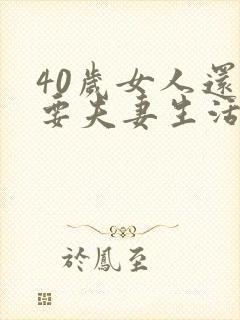 40歲女人還
要夫妻生活
於鳳至